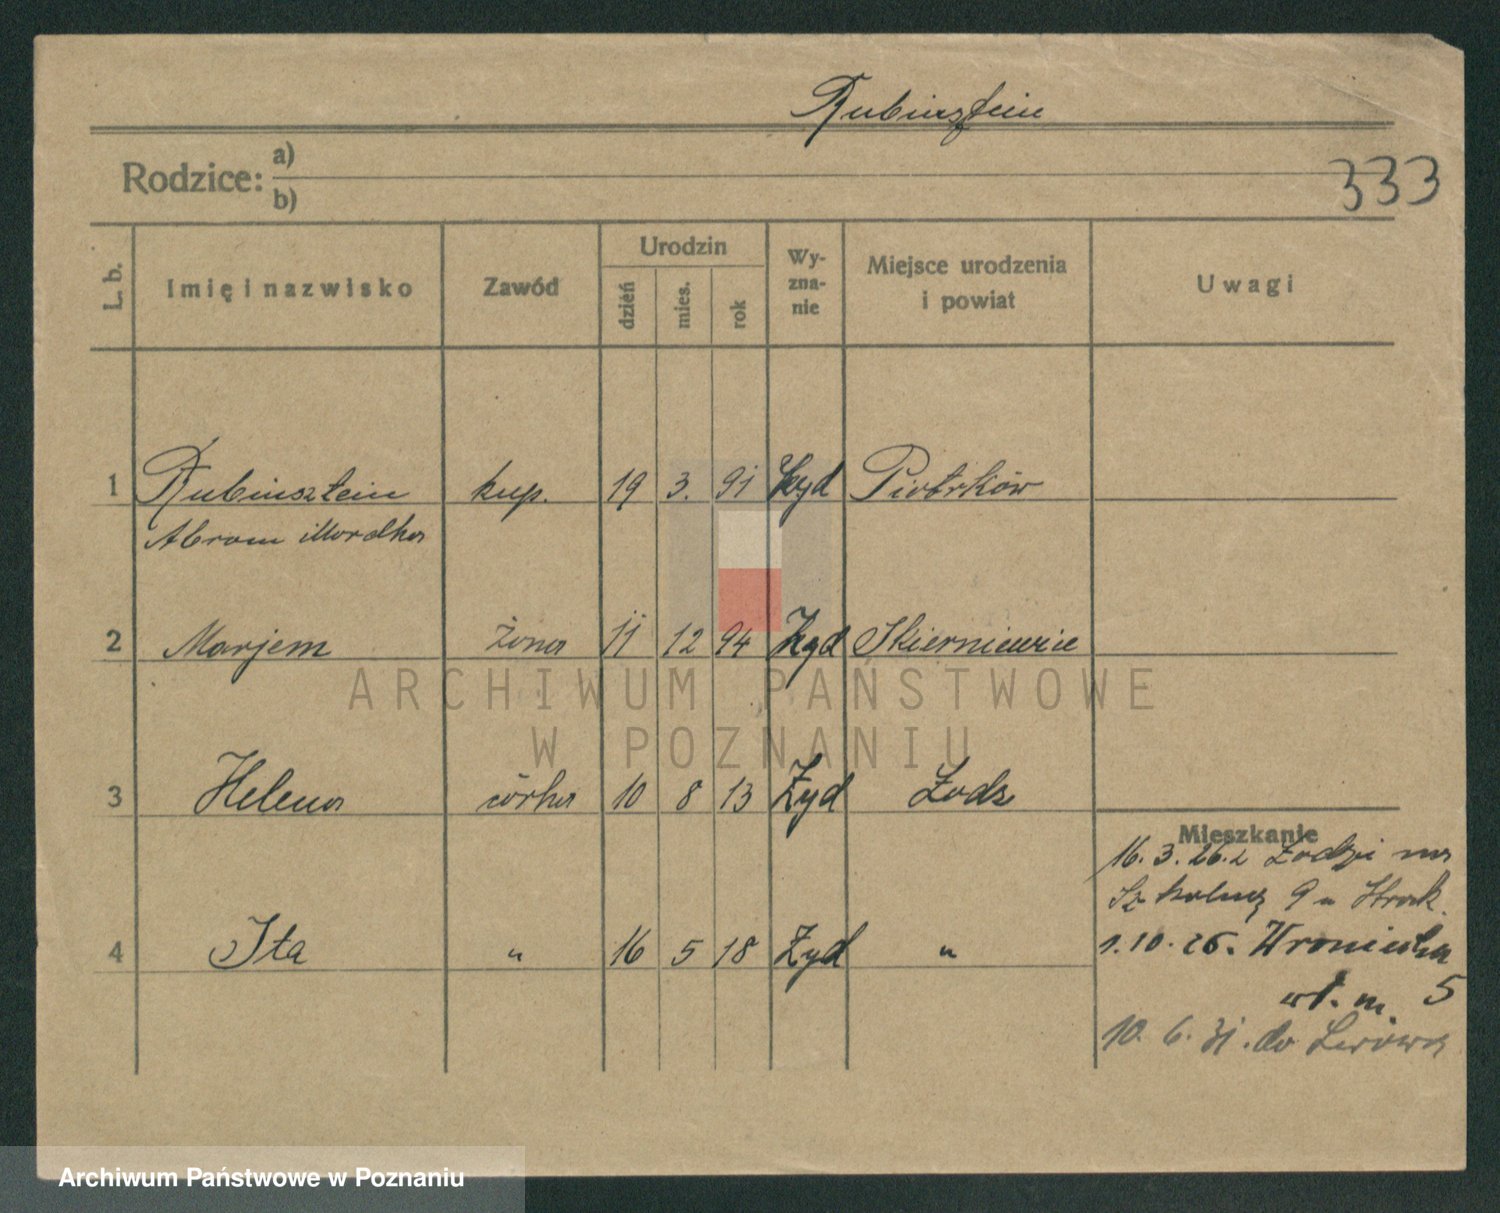 Rubinsztein
Rodzice: a)
b)
333
L. b. Imię i nazwisko Zawód Urodzin dzień mies. rok Wy-zna-nie Miejsce urodzenia i powiat Uwagi
1 Rubinsztein kup. 19 3. 91 żyd Piotrków
Abram Mordka
2 Marjem żona 11 12 94 żyd Skierniewice
ARCHIWUM PAŃSTWOWE
W POZNANIU
3 Helena córka 10 8 13 Żyd Łodz
Mieszkanie
16. 3. 26. z Łodzi na
Szkolną 9 u
4 Ita " 16 5 18 Żyd "
1. 10. 26. Wroniecka
m. 5
10. 6. 31. do Lwowa
Archiwum Państwowe w Poznaniu